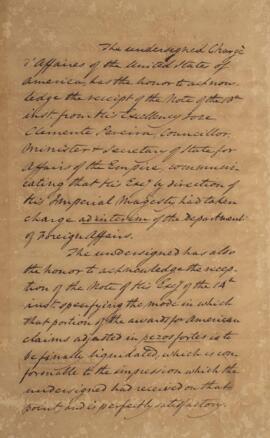 The undersigned Chargé
d'Affaires of the United States of
America, has the honor to acknow-
ledge the receipt of the Note of the
inst. from His Excellency Jose
Clemente Pereira, Councillor,
Minister & Secretary of State for
Affairs of the Empire, communi-
cating that His Exc.y by direction of
His Imperial Majesty, had taken
charge ad interim of the department
of Foreign Affairs.
The undersigned has also
the honor to acknowledge the recep-
tion of the Note of His Exc.y of the 14th
inst. specifying the mode in which
that portion of the awards for American
claims adjusted in pezos fortes is to
be finally liquidated, which is con-
formable to the impression which the
undersigned had received on that
point, and is perfectly satisfactory.